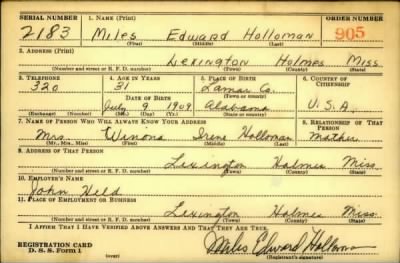 SERIAL NUMBER 1. NAME (Print) ORDER NUMBER
2183 Miles Edward Holloman 905
(First) (Middle) (Last)
2. ADDRESS (Print)
Lexington Holmes Miss.
(Number and street or R. F. D. number) (Town) (County) (State)
3. TELEPHONE 4. AGE IN YEARS 5. PLACE OF BIRTH 6. COUNTRY OF CITIZENSHIP
320 31 Lamar Co.
DATE OF BIRTH (Town or county)
July 9 1909 Alabama U.S.A.
(Exchange) (Number) (Mo.) (Day) (Yr.) (State or country)
7. NAME OF PERSON WHO WILL ALWAYS KNOW YOUR ADDRESS 8. RELATIONSHIP OF THAT PERSON
Mrs. Winona Irene Holloman Mother
(Mr., Mrs., Miss) (First) (Middle) (Last)
9. ADDRESS OF THAT PERSON
Lexington Holmes Miss.
(Number and street or R. F. D. number) (Town) (County) (State)
10. EMPLOYER'S NAME
John Held
11. PLACE OF EMPLOYMENT OR BUSINESS
Lexington Holmes Miss.
(Number and street or R. F. D. number) (Town) (County) (State)
I AFFIRM THAT I HAVE VERIFIED ABOVE ANSWERS AND THAT THEY ARE TRUE.
REGISTRATION CARD
D. S. S. Form 1 (over) Miles Edward Holloman
(Registrant's signature)